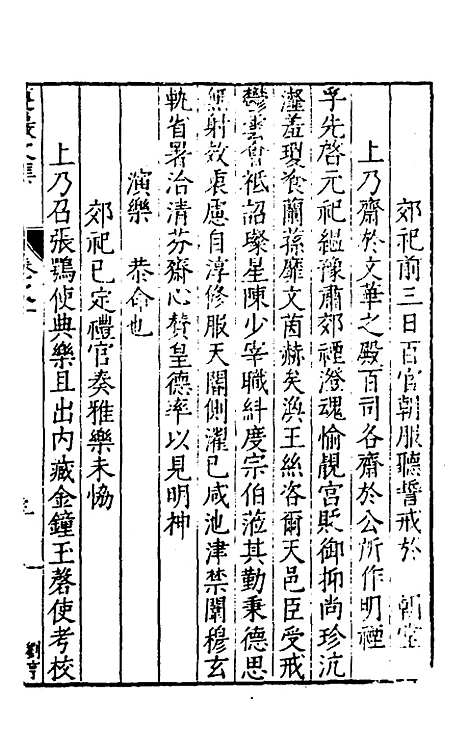 郊祀前三日百官朝服聽誓戒於　朝堂
上乃齋於文華之殿百司各齋於公所作明禋
孚先啓元祀緼豫肅郊禋澄魂愉靚宮貶御抑尚珍沆
瀣羞瓊飡蘭蓀靡文茵赫矣渙王絲咨爾天邑臣受戒
鬱雲會祗詔璨星陳少宰職糾度宗伯蒞其勤秉德思
無射效衷慮自淳修服天關側濯已咸池津禁闈穆玄
軌省署治清芬齋心贊皇德率以見明神
演樂　恭命也
郊祀已定禮官奏雅樂未恊
上乃召張鶚使典樂且出內藏金鐘玉磬使考校
卷之一
劉亨